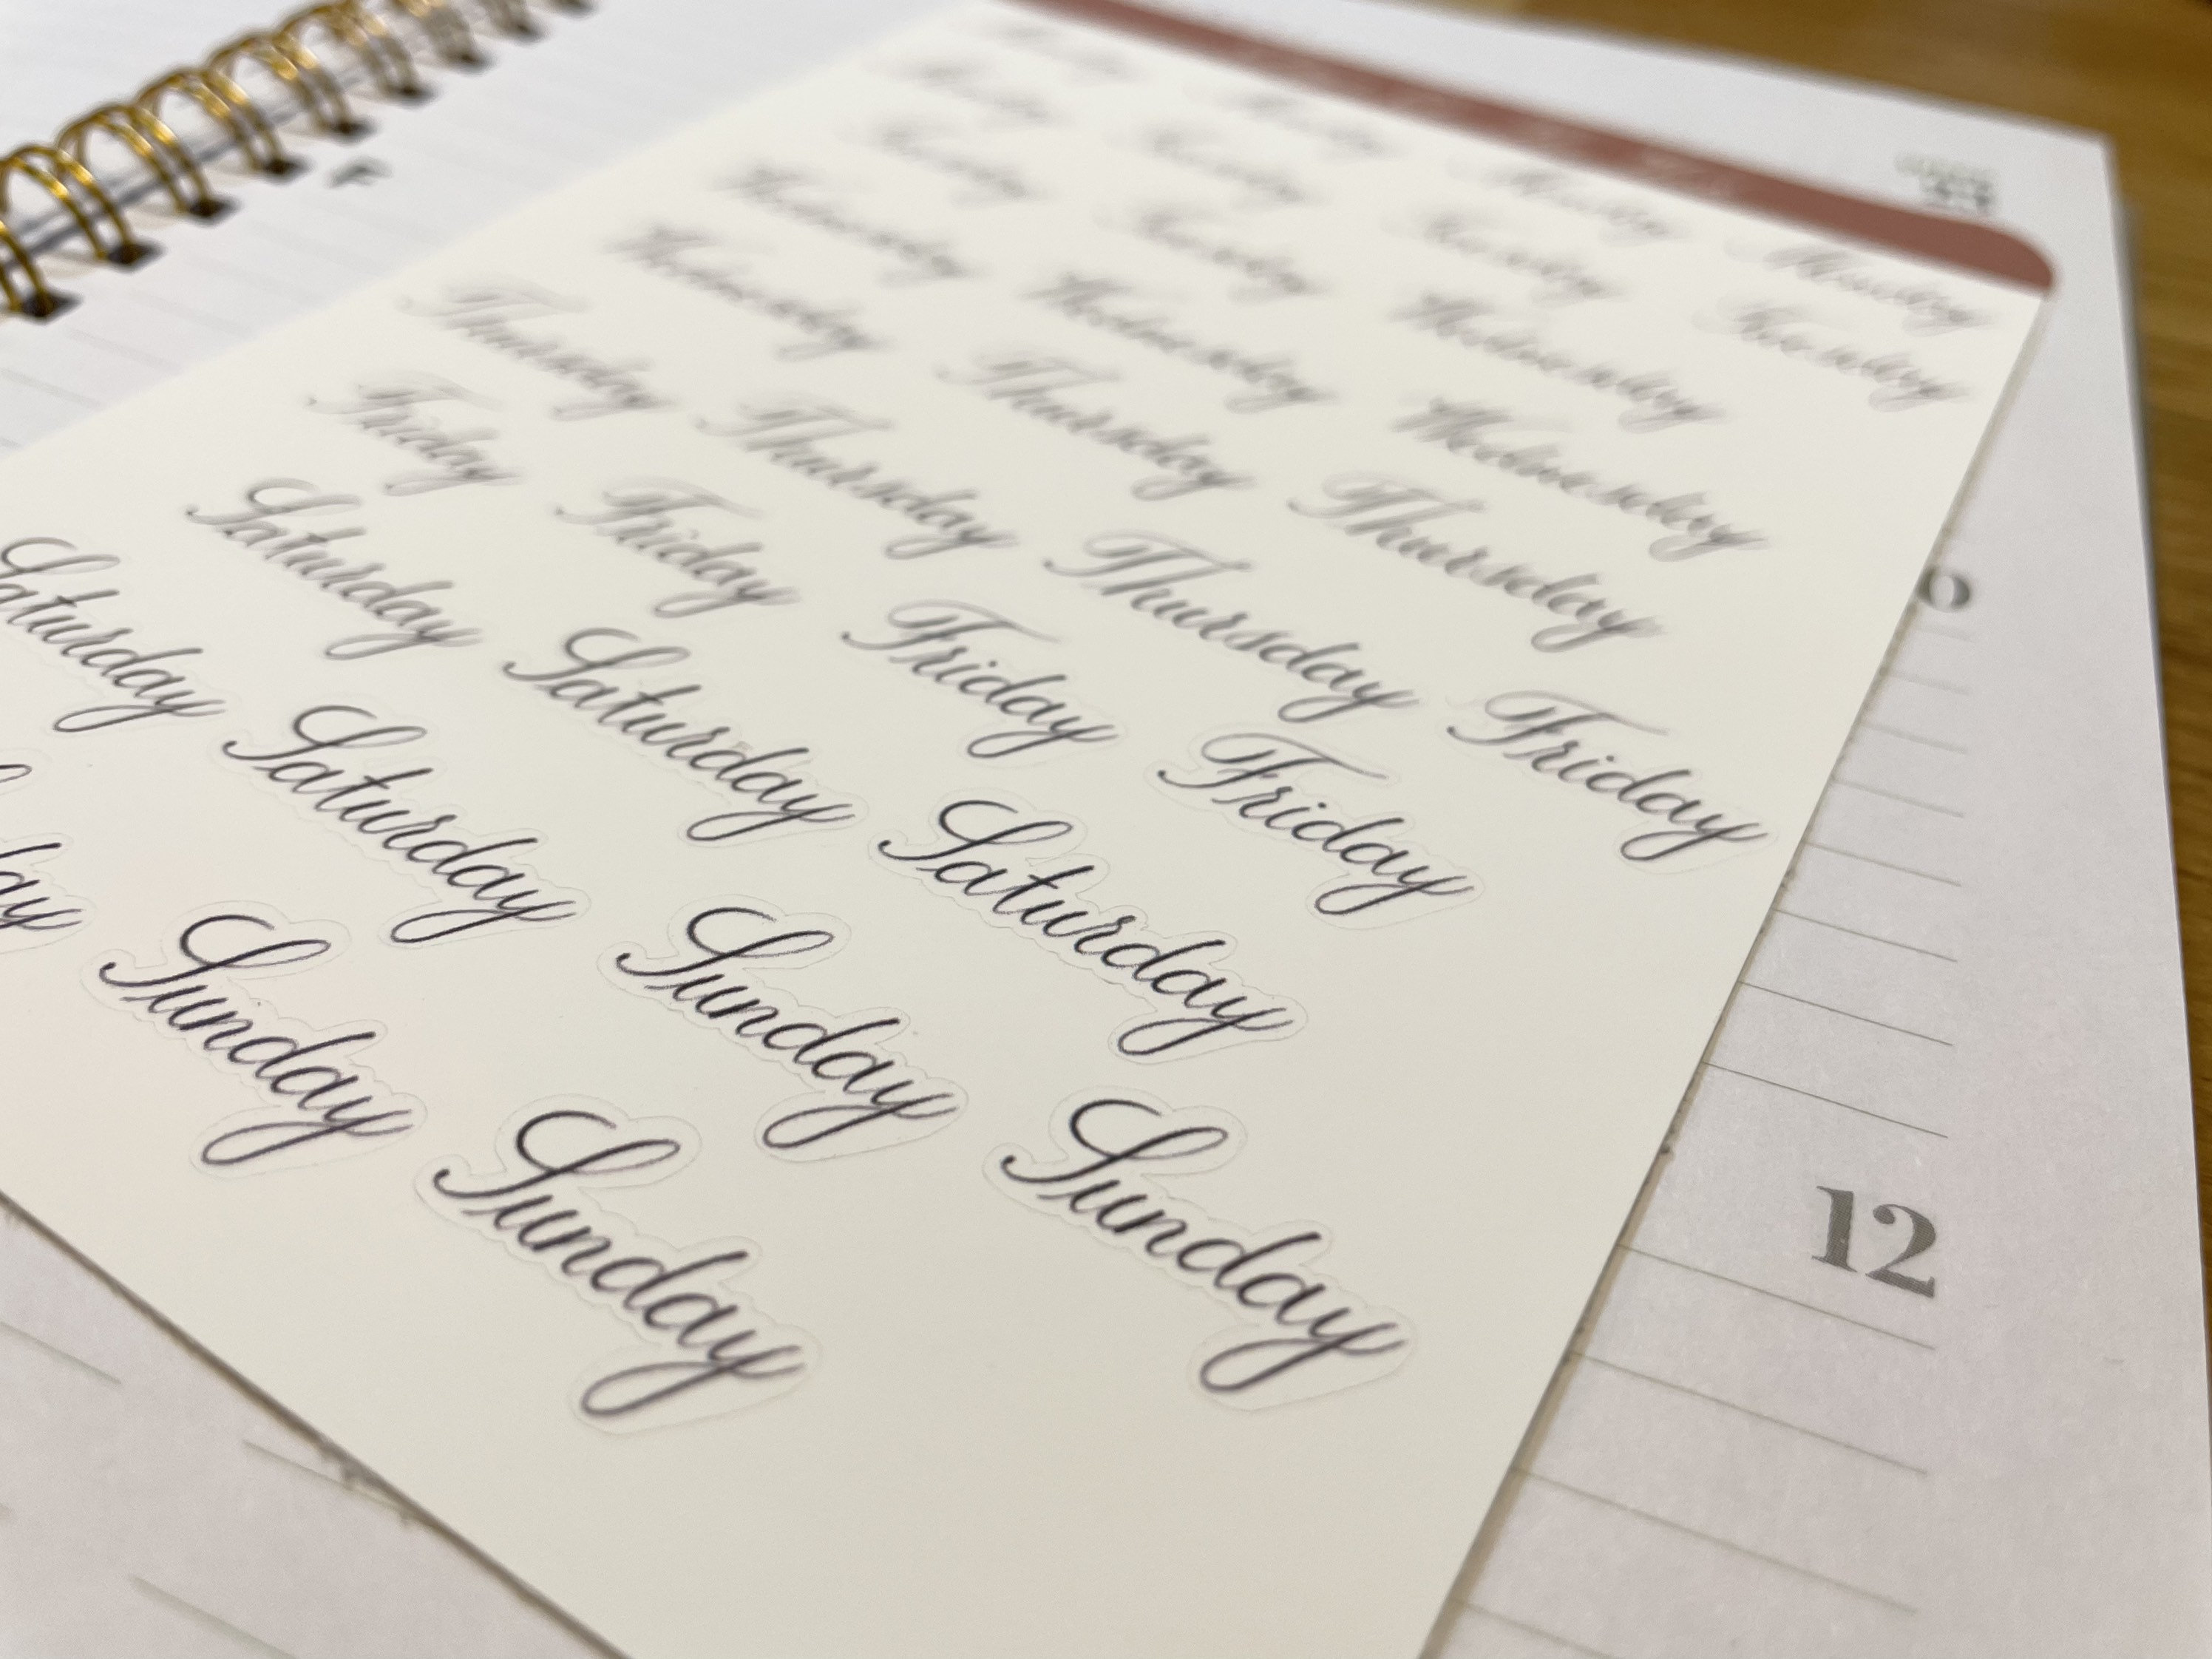 Monday Monday Monday Monday
Monday Tuesday Tuesday Tuesday
Tuesday Tuesday Wednesday
Wednesday Wednesday Wednesday
Wednesday Thursday Thursday
Thursday Thursday Thursday Friday
Friday Friday Friday Friday
Saturday Saturday Saturday
Saturday Saturday Sunday Sunday
Sunday Sunday
12